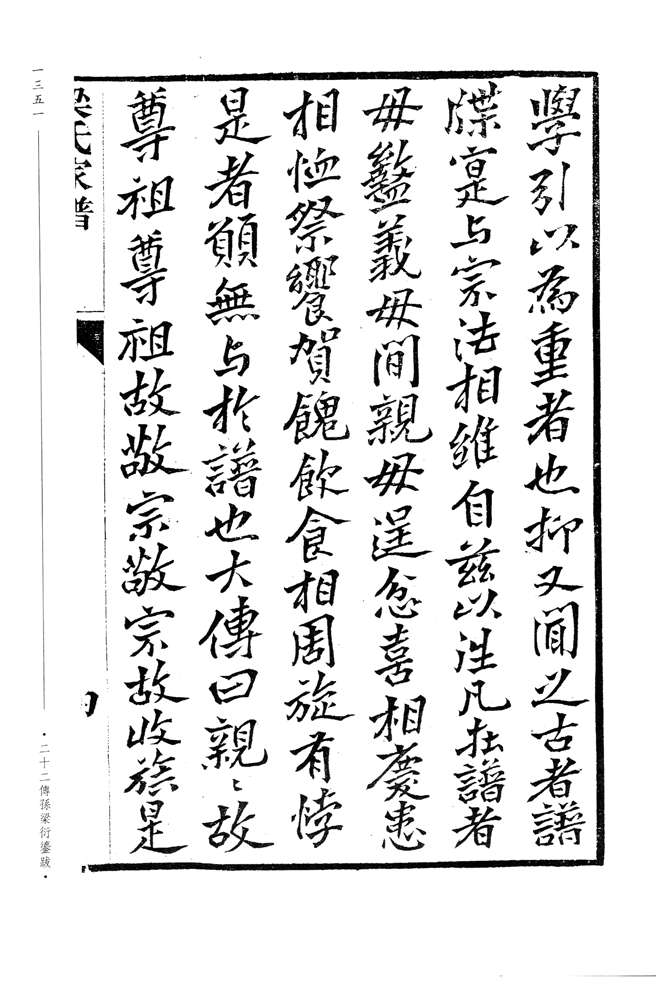 學引以為重者也抑又聞之古者譜
牒寔与宗法相維自茲以往凡在譜者
毋齾義毋間親毋逞忿喜相慶患
相恤祭饗賀餽飲食相周旋有悖
是者顓無与於譜也大傳曰親〻故
尊祖尊祖故敬宗敬宗故收族是
梁氏家譜
一三五一
·二十二傳孫梁衍鎏跋·